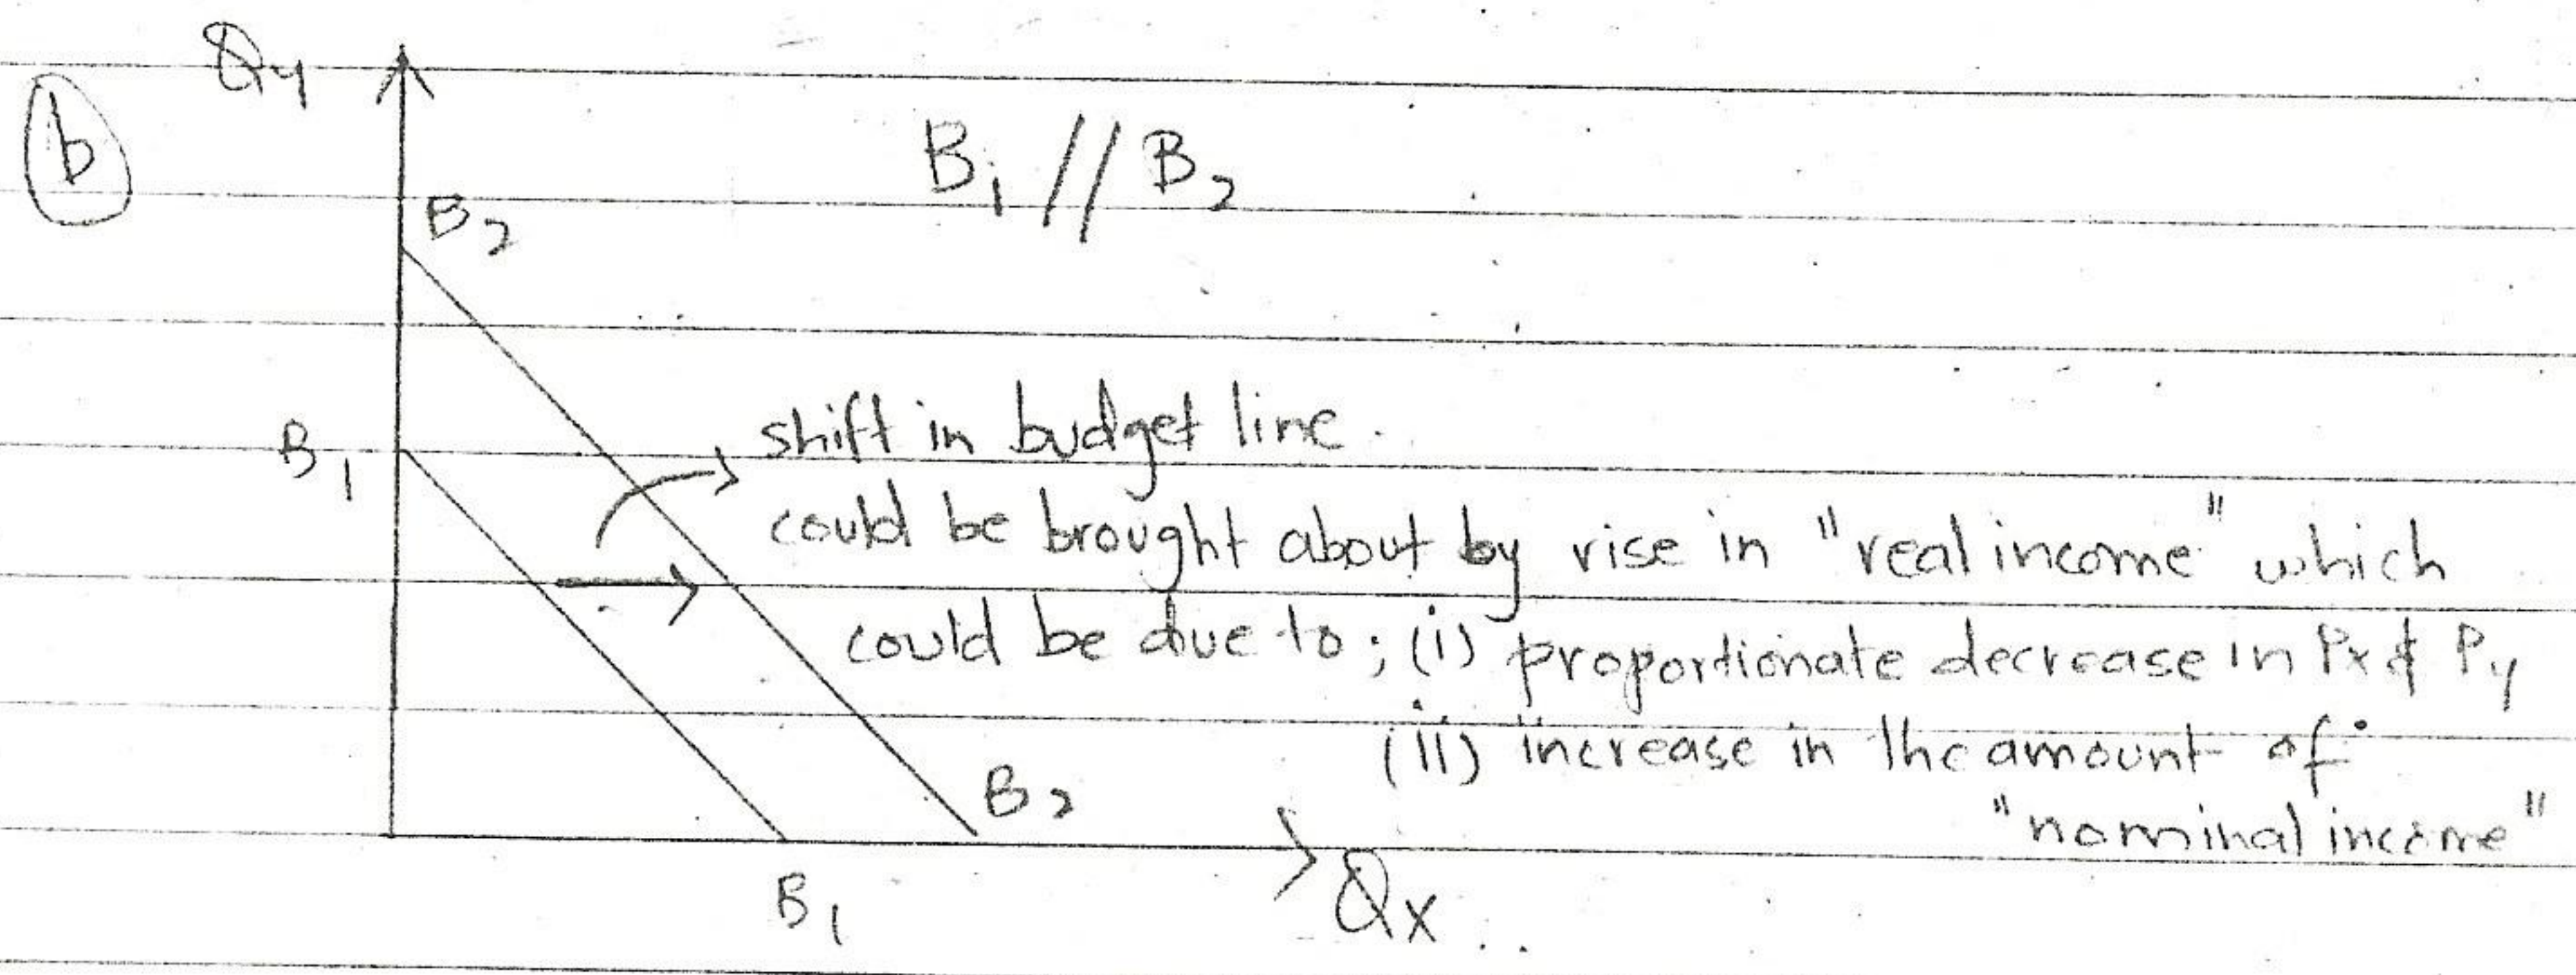 Qy
b
B1 // B2
B2
B1
shift in budget line.
could be brought about by rise in "real income" which
could be due to; (i) proportionate decrease in Px & Py
(ii) increase in the amount of
"nominal income"
B2
B1
Qx